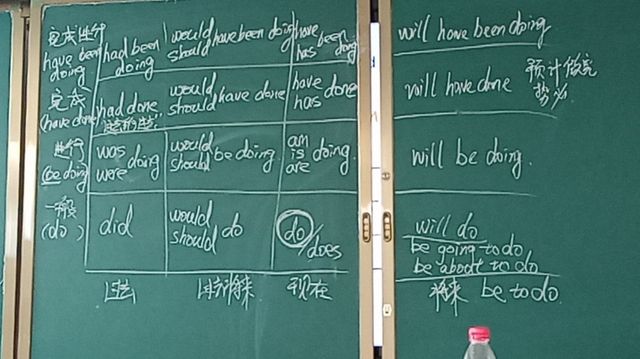 完成进行 had been would have been doing have will have been doing
have been doing should has been doing
doing
完成 had done would have done have done will have done 预计做完
(have done) 过去的过去 should has 势必
进行 was doing would be doing am doing. will be doing.
(be doing) were should is
are
一般 did would do do/does will do
(do) should be going to do
be about to do
过去 过去将来 现在 将来 be to do.